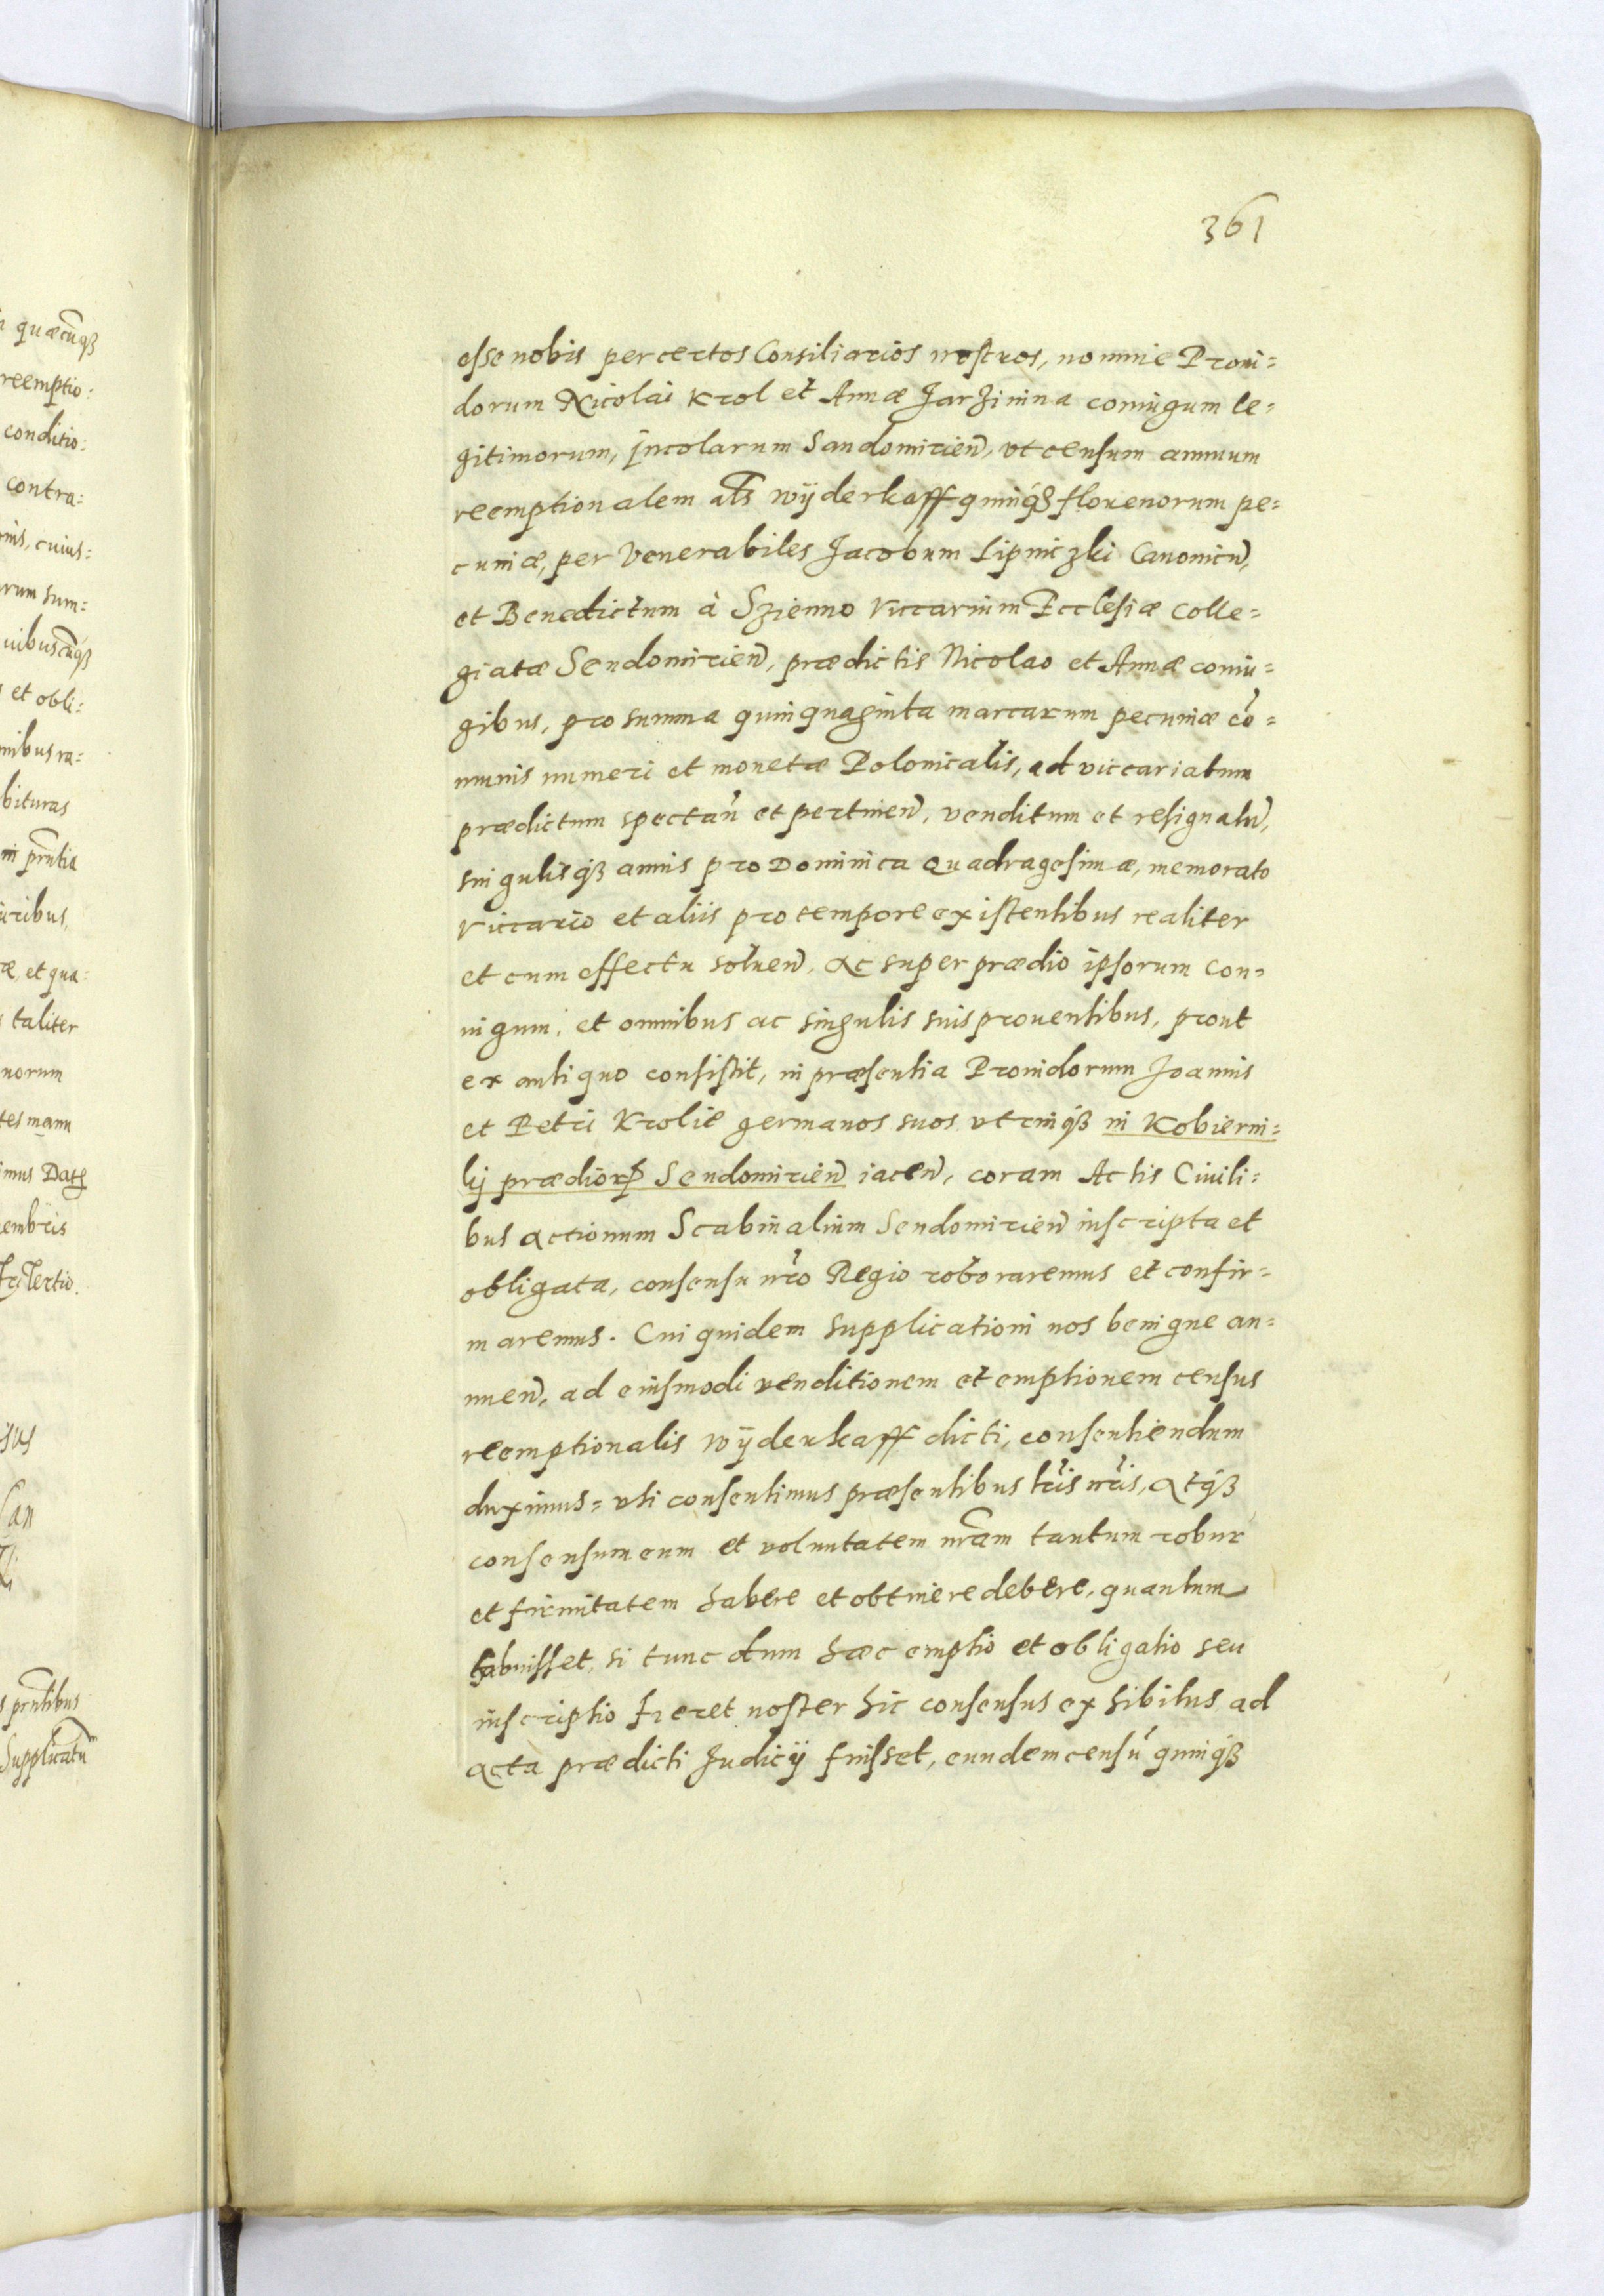 361
esse nobis per certos Consiliarios nostros, nomine Proui=
dorum Nicolai Krol et Annæ Jarzinina coniugum le=
gitimorum, incolarum Sandomirien̄, vt censum annuum
reemptionalem al̄s wÿderkaff quinq₃ florenorum pe=
cuniæ, per Venerabiles Jacobum Lipniczki Canonicū,
et Benedictum à Szienno Viccarium Ecclesiæ Colle=
giatæ Sendomirien̄, prædictis Nicolao et Annæ coniu=
gibus, pro summa quinquaginta marcarum pecuniæ cō=
munis numeri et monetæ Polonicalis, ad viccariatum
prædictum spectan̄ et pertinen̄, venditum et resignatū,
singulisq₃ annis pro Dominica Quadragesimæ, memorato
Viccario et aliis pro tempore existentibus realiter
et cum effectu soluen̄, ac super prædio ipsorum con=
iugum, et omnibus ac singulis suis prouentibus, prout
ex antiquo consistit, in præsentia Prouidorum Joannis
et Petri Krolie germanos suos vtrinq₃ in Kobierni=
kij prædiorꝝ Sendomirien̄ iacen̄, coram Actis Ciuili=
bus actionum Scabinalium Sendomirien̄ inscripta et
obligata, consensu nr̄o Regio roboraremus et confir=
maremus. Cui quidem supplicationi nos benigne an=
nuen̄, ad eiusmodi venditionem et emptionem census
reemptionalis wÿderkaff dicti, consentiendum
duximus= vti consentimus præsentibus lr̄is nr̄is, atq₃
consensum eum et voluntatem nr̄am tantum robur
et firmitatem habere et obtinere debere, quantum
habuisset, si tunc dum hæc emptio et obligatio seu
inscriptio fieret noster hic consensus exhibitus ad
acta prædicti Judicÿ fuisset, eundem censū quinq₃
quæcūq₃
reemptio:
conditio:
contra:
cuius:
rum sum=
uibuscūq₃
et obli:
nibus ra=
bituras
in prn̄tia
et qua:
taliter
norum
manu
imus Datꝫ
embris
Tertio.
prn̄tibus
Supplicatū